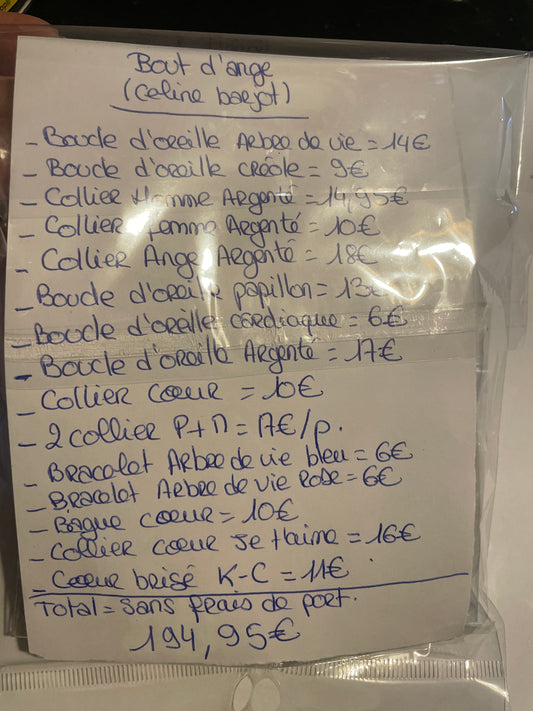 Bout d'ange
(Celine barjot)
- Boucle d'oreille Arbre de vie = 14€
- Boucle d'oreille créole = 9€
- Collier Homme Argenté = 14,95€
- Collier femme Argenté = 10€
- Collier Ange Argenté = 18€
- Boucle d'oreille papillon = 13€
- Boucle d'oreille cardiaque = 6€
- Boucle d'oreille Argenté = 17€
- Collier cœur = 10€
- 2 collier P+M = 17€/p.
- Bracelet Arbre de vie bleu = 6€
- Bracelet Arbre de vie Rose = 6€
- Bague cœur = 10€
- Collier cœur Je t'aime = 16€
- Cœur brisé K-C = 11€
Total = sans frais de port.
194,95€